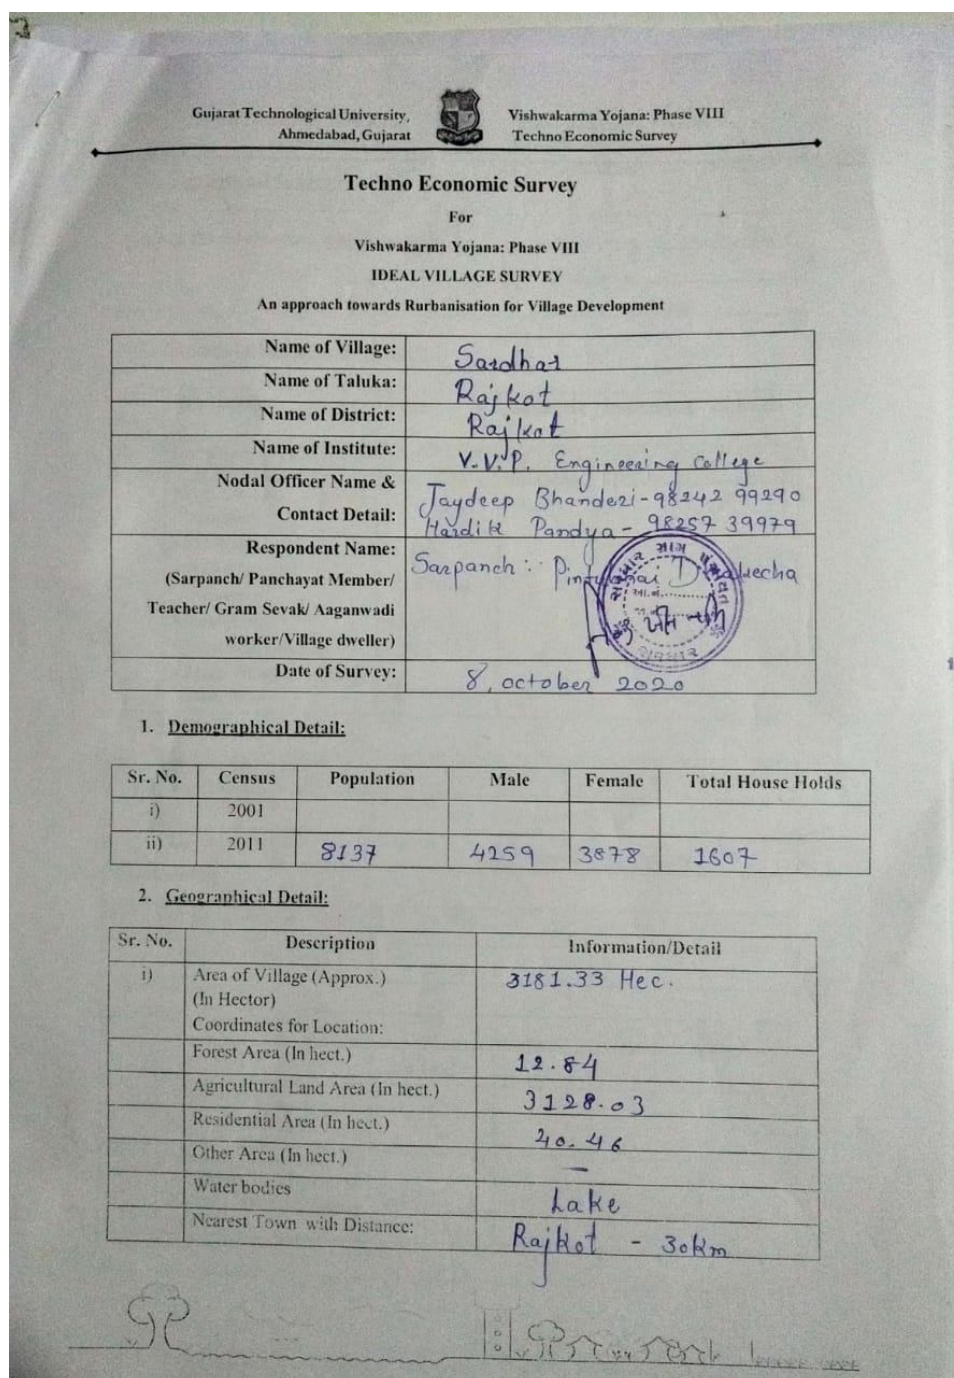 Gujarat Technological University, Vishwakarma Yojana: Phase VIII
Ahmedabad, Gujarat Techno Economic Survey
Techno Economic Survey
For
Vishwakarma Yojana: Phase VIII
IDEAL VILLAGE SURVEY
An approach towards Rurbanisation for Village Development
Name of Village: Sardhar
Name of Taluka: Rajkot
Name of District: Rajkot
Name of Institute: V.V.P. Engineering College
Nodal Officer Name & Jaydeep Bhanderi - 98242 99290
Contact Detail: Hardik Pandya - 98257 39979
Respondent Name: Sarpanch :
(Sarpanch/ Panchayat Member/
Teacher/ Gram Sevak/ Aaganwadi
worker/Village dweller)
Date of Survey: 8, october 2020
1. Demographical Detail:
Sr. No. Census Population Male Female Total House Holds
i) 2001
ii) 2011 8137 4259 3878 1607
2. Geographical Detail:
Sr. No. Description Information/Detail
i) Area of Village (Approx.) 3181.33 Hec.
(In Hector)
Coordinates for Location:
Forest Area (In hect.) 12.84
Agricultural Land Area (In hect.) 3128.03
Residential Area (In hect.) 40.46
Other Area (In hect.) —
Water bodies Lake
Nearest Town with Distance: Rajkot - 30km